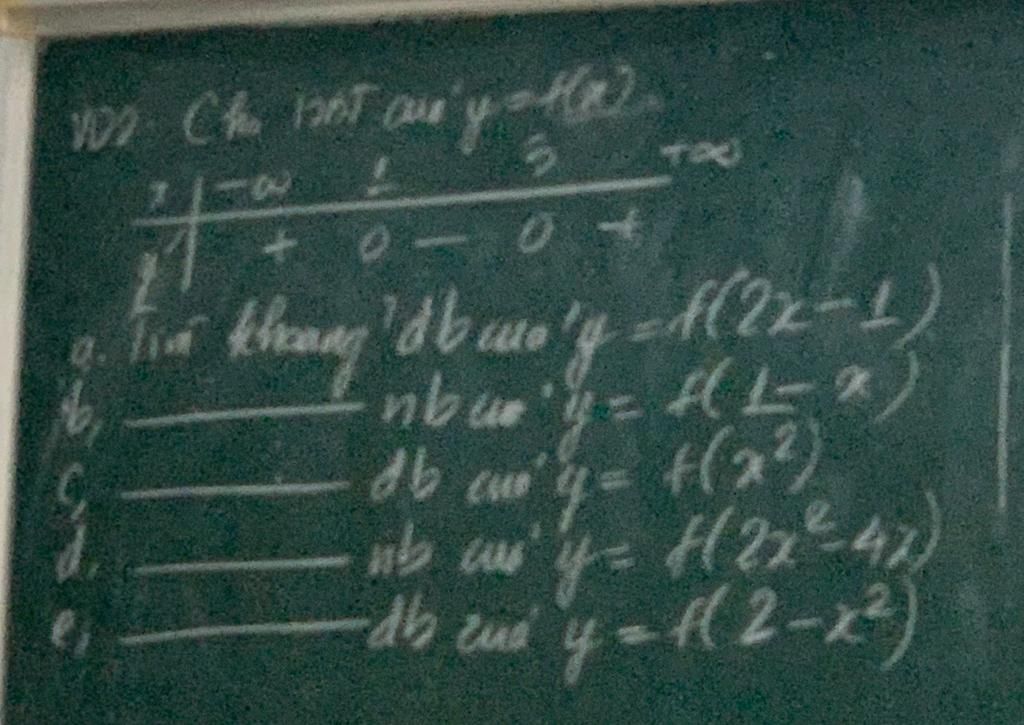 Cho BBT của y = f(x)
x | -∞ 1 3 +∞
y' | + 0 - 0 +
a. Tìm khoảng đb của y = f(2x - 1)
b, ——— nb của y = f(1 - x)
c, ——— đb của y = f(x²)
d. ——— nb của y = f(2x² - 4x)
e, ——— đb của y = f(2 - x²)